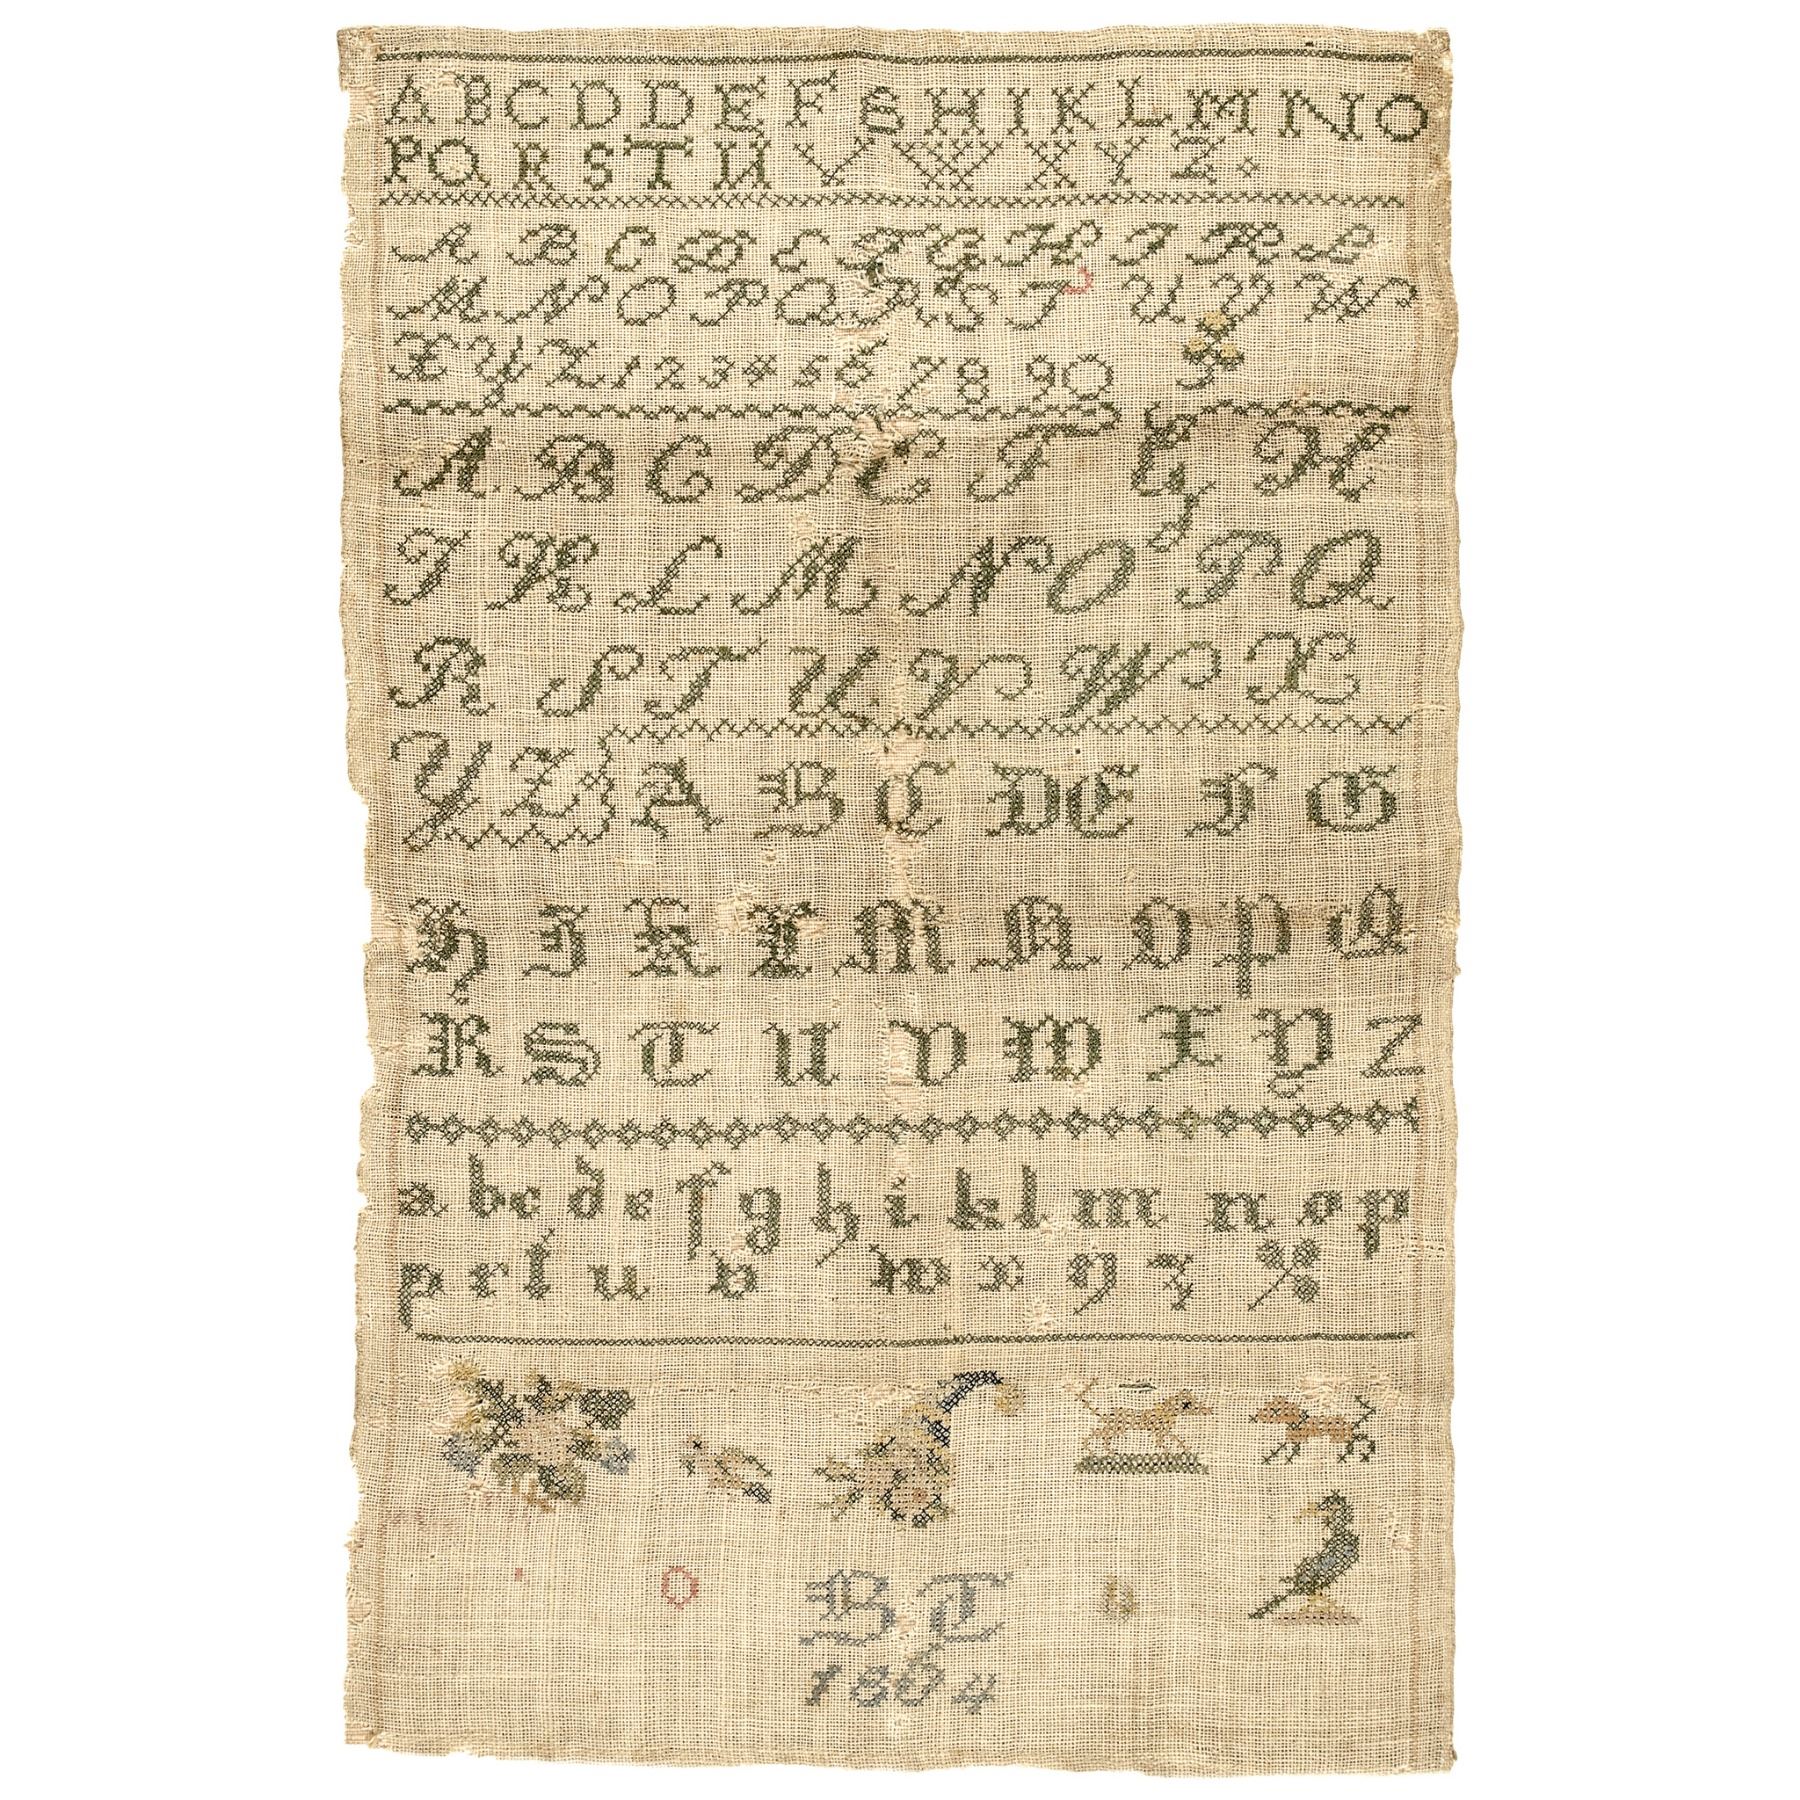 A B C D D E F S H I K L M N O
P Q R S T U V W X Y Z
A B C D E F G H I K L
M N O P Q R S T U V W
X Y Z 1 2 3 4 5 6 7 8 9 0
A B C D E F G H
I K L M N O P Q
R S T U V W X
Y Z A B C D E F G
H I K L M N O P Q
R S T U V W X Y Z
a b c d e f g h i k l m n o p
p r t u v w x y z
O B T h
1864